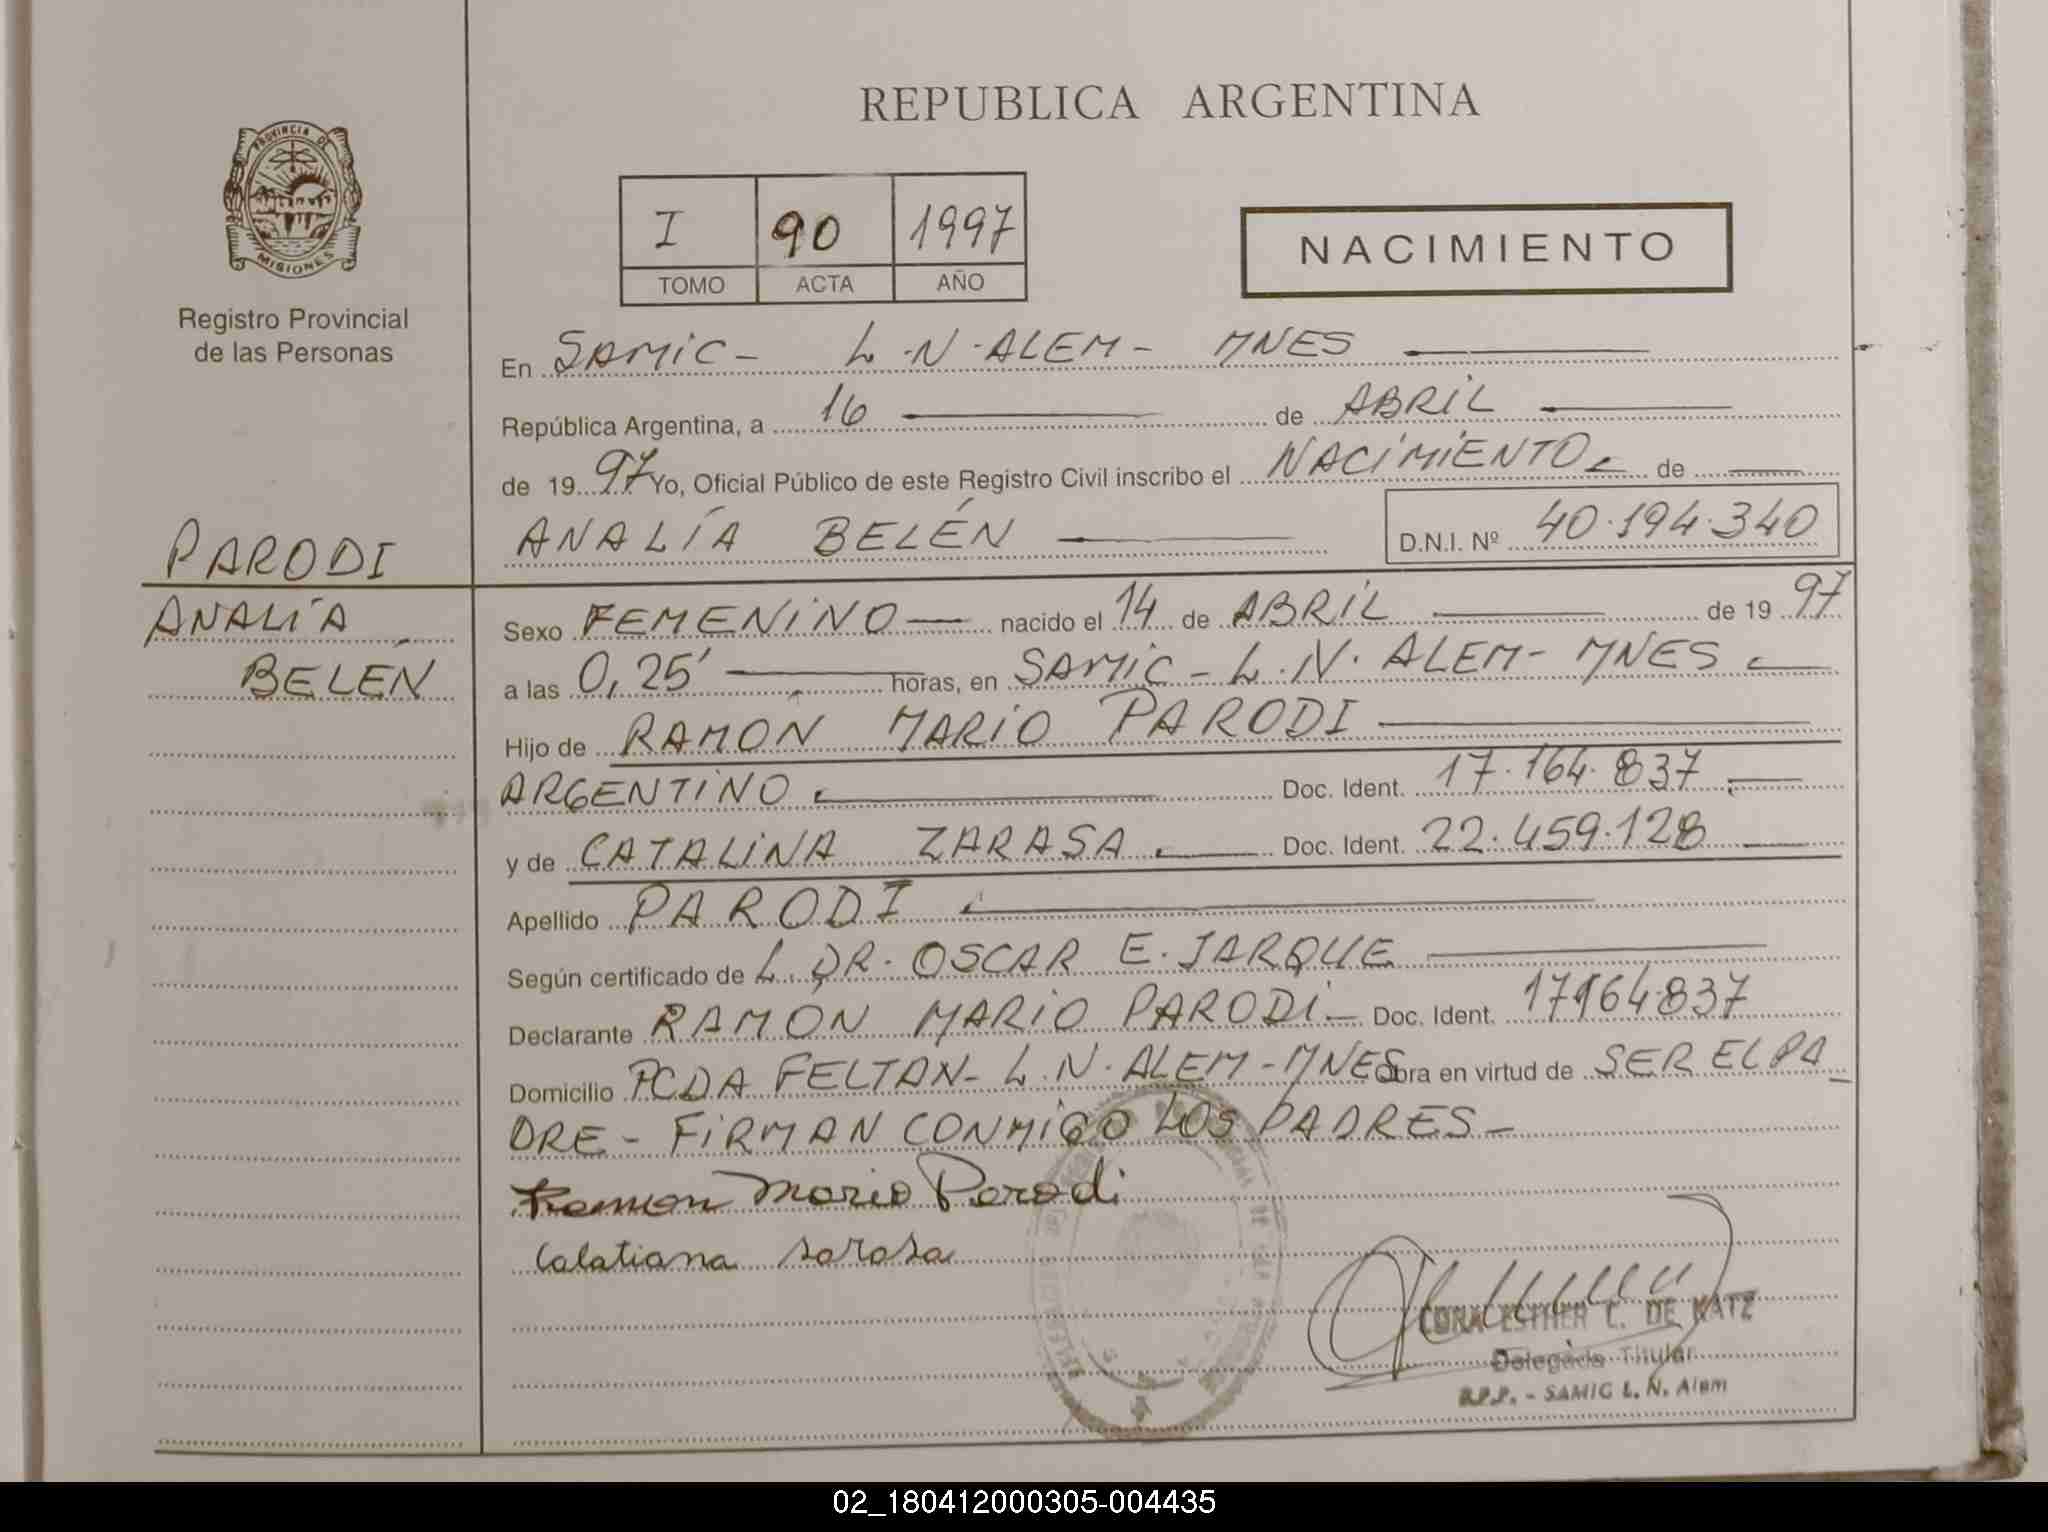 REPUBLICA ARGENTINA
PROVINCIA DE
MISIONES
Registro Provincial
de las Personas
I 90 1997
TOMO ACTA AÑO
NACIMIENTO
En SAMIC - L.N. ALEM - MNES
República Argentina, a 16 de ABRIL
de 1997 Yo, Oficial Público de este Registro Civil inscribo el NACIMIENTO de
ANALÍA BELÉN D.N.I. Nº 40.194.340
PARODI
ANALÍA
BELÉN
Sexo FEMENINO nacido el 14 de ABRIL de 1997
a las 0,25' horas, en SAMIC - L.N. ALEM - MNES
Hijo de RAMÓN MARIO PARODI
ARGENTINO Doc. Ident. 17.164.837
y de CATALINA ZARASA Doc. Ident. 22.459.128
Apellido PARODI
Según certificado de L. DR. OSCAR E. JARQUE
Declarante RAMÓN MARIO PARODI - Doc. Ident. 17164.837
Domicilio PCDA FELTAN - L.N. ALEM - MNES Obra en virtud de SER EL PA_
DRE - FIRMAN CONMIGO LOS PADRES -
Ramon Mario Parodi
Calatiana sarasa
ESTHER C. DE KATZ
Delegada Titular
R.P.P. - SAMIC L. N. Alem
02_180412000305-004435